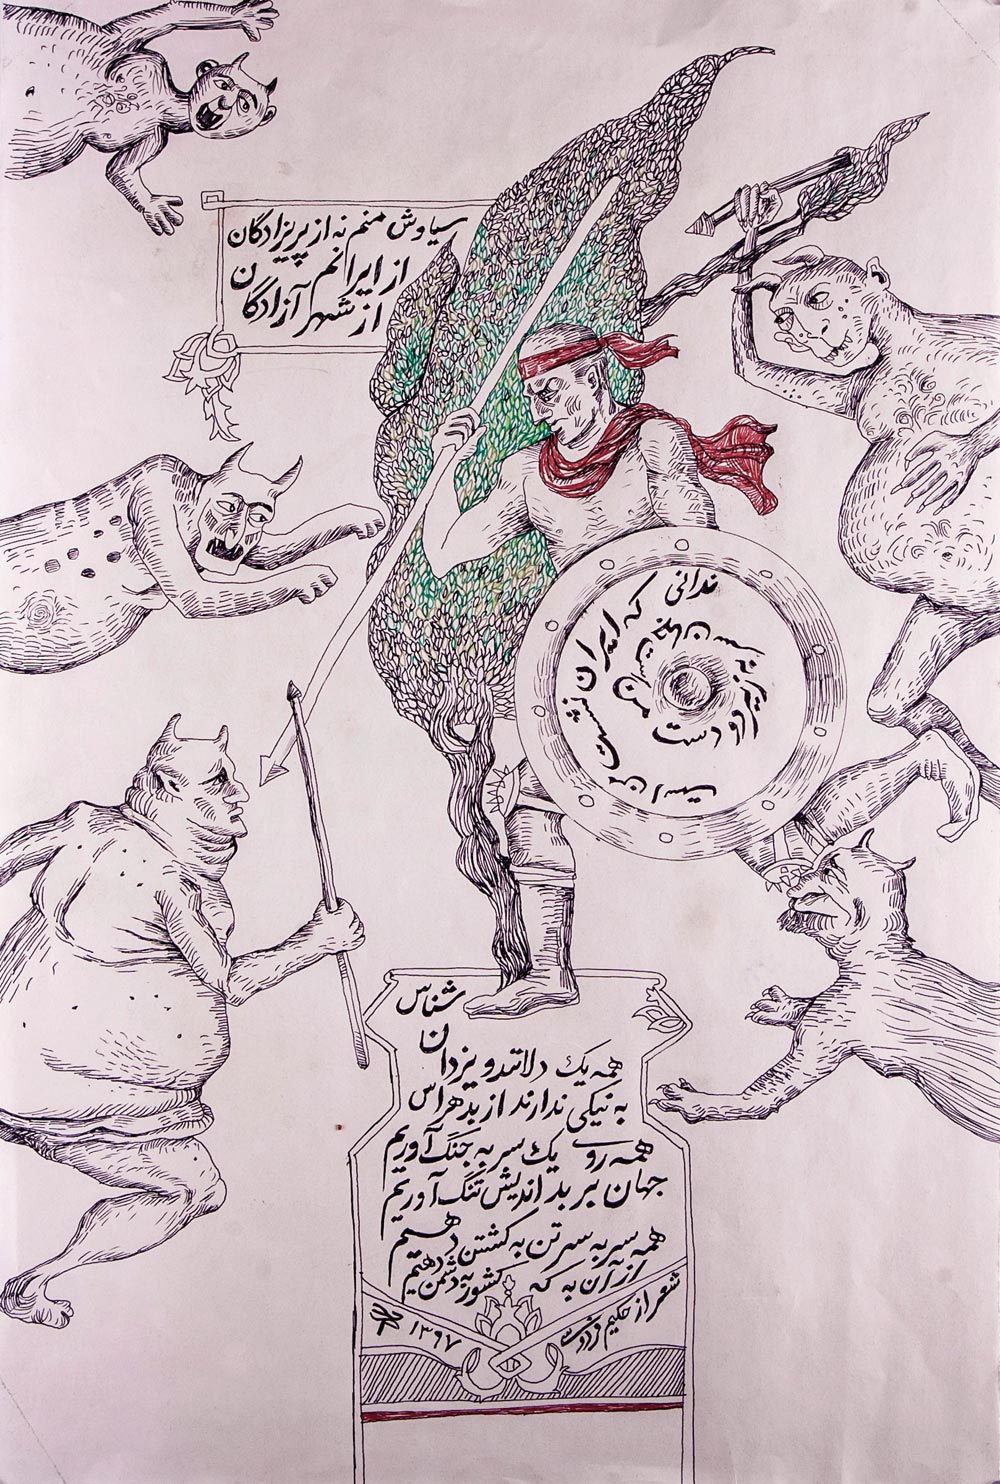 سیاوش منم نه از پریزادگان
از ایرانم
از شهر آزادگان
ندانی که ایران نشست منست
جهان سر به سر زیر دو دست منست
همه یک دلانند و یزدان شناس
به نیکی ندارند از بد هراس
همه روی یک سر به جنگ آوریم
جهان بر بد اندیش تنگ آوریم
همه سر به سر تن به کشتن دهیم
از آن به که کشور به دشمن دهیم
شعر از حکیم فردوسی
۱۳۹۷